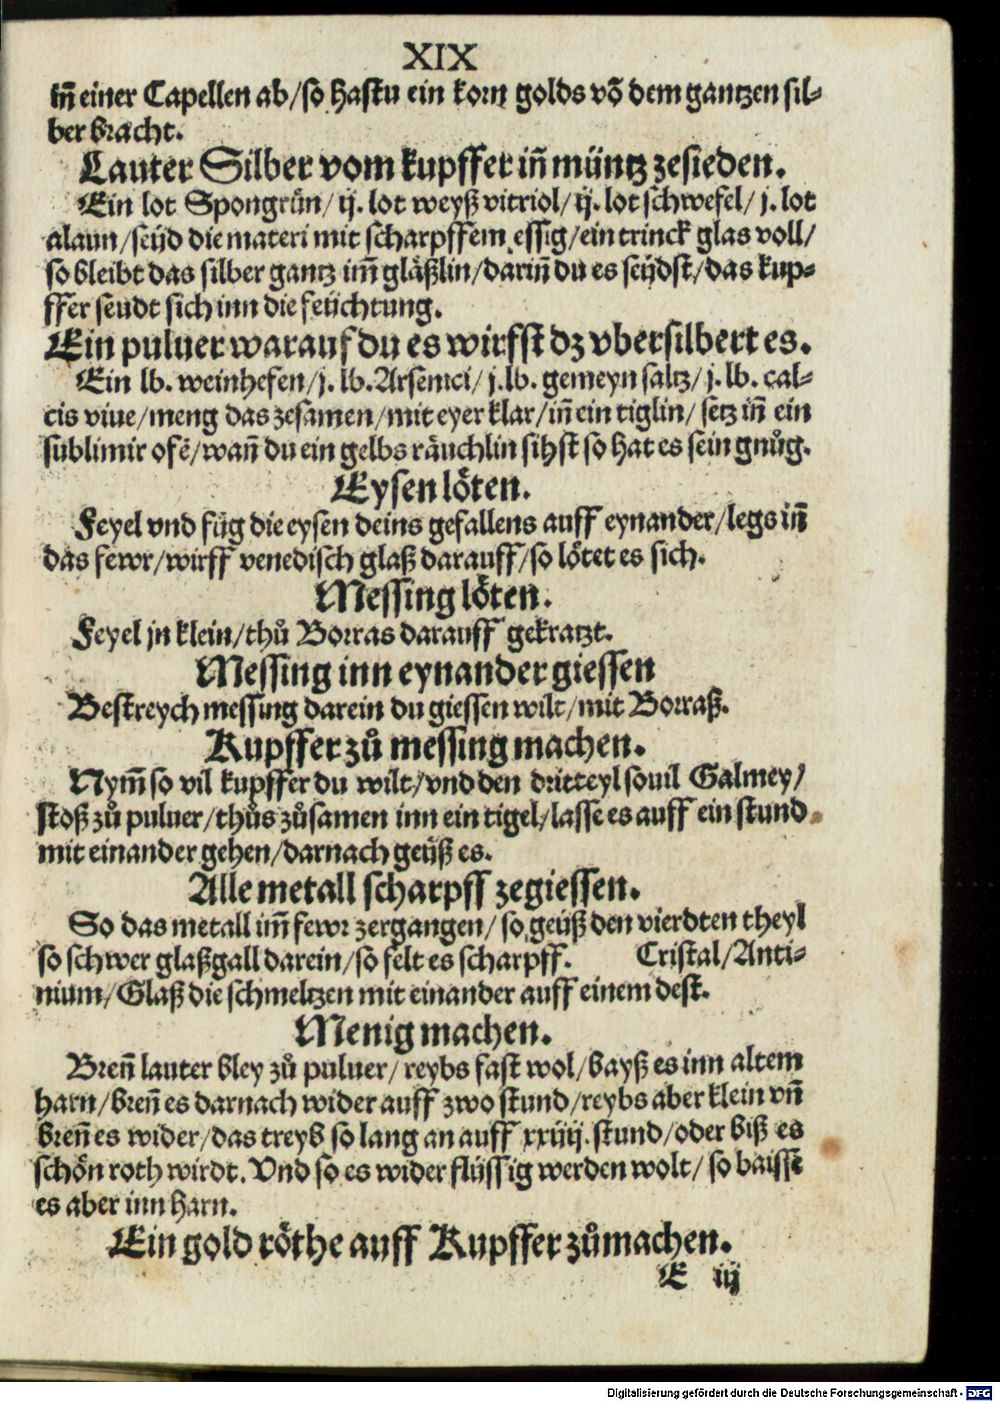 XIX
iñ einer Capellen ab/so hastu ein korn golds võ dem gantzen sil⸗
ber bracht.
Lauter Silber vom kupffer iñ müntz zesieden.
Ein lot Spongrün/ ij. lot weyß vitriol/ ij. lot schwefel/ j. lot
alaun/seüd die materi mit scharpffem essig/ein trinck glas voll/
so bleibt das silber gantz im̃ gläßlin/dariñ du es seüdst/das kup⸗
ffer seudt sich inn die feüchtung.
Ein puluer warauf du es wirfst dz vbersilbert es.
Ein lb. weinhefen/j. lb. Arsenici/ j.lb. gemeyn saltz/ j. lb. cal⸗
cis viue/meng das zesamen/mit eyer klar/iñ ein tiglin/ setz iñ ein
sublimir ofẽ/wañ du ein gelbs räuchlin sihst so hat es sein gnůg.
Eysen löten.
Feyel vnd füg die eysen deins gefallens auff eynander/legs iñ
das fewr/wirff venedisch glaß darauff/so lötet es sich.
Messing löten.
Feyel jn klein/thů Borras darauff gekratzt.
Messing inn eynander giessen
Bestreych messing darein du giessen wilt/mit Borraß.
Kupffer zů messing machen.
Nym̃ so vil kupffer du wilt/vnd den dritteyl souil Galmey/
stoß zů puluer/thůs zůsamen inn ein tigel/lasse es auff ein stund
mit einander gehen/darnach geüß es.
Alle metall scharpff zegiessen.
So das metall im̃ fewr zergangen/ so geüß den vierdten theyl
so schwer glaßgall darein/so felt es scharpff. Cristal/Anti⸗
nium/Glaß die schmeltzen mit einander auff einem dest.
Menig machen.
Breñ lauter bley zů puluer/ reybs fast wol/bayß es inn altem
harn/breñ es darnach wider auff zwo stund/reybs aber klein vñ
breñ es wider/das treyb so lang an auff xxiiij. stund/oder biß es
schön roth wirdt. Vnd so es wider flüssig werden wolt/ so baisse
es aber inn harn.
Ein gold röthe auff Kupffer zůmachen.
E iij
Digitalisierung gefördert durch die Deutsche Forschungsgemeinschaft - DFG